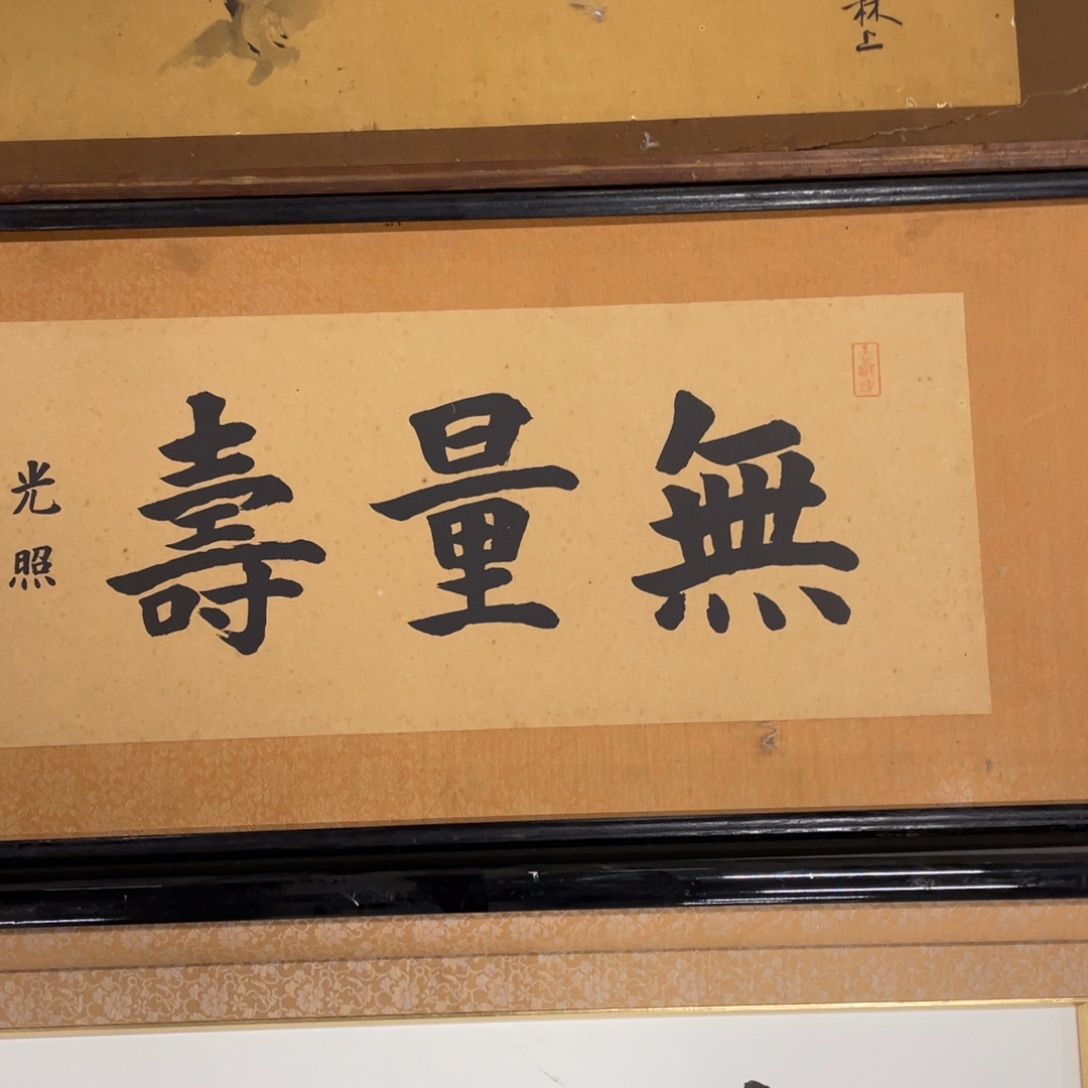 林上
無量壽
光照